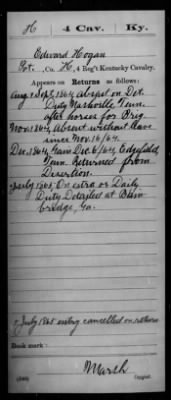 H | 4 Cav. | Ky.
Edward Hogan
Pvt., Co. H, 4 Reg't Kentucky Cavalry.
Appears on Returns as follows:
Aug & Sept 1864, absent on Det.
Duty Nashville Tenn.
after horses for Brig
Nov. 1864, Absent without leave
since Nov. 16/64.
Dec. 1864, Gain Dec. 6/64, Edgefield,
Tenn. Returned from
Desertion.
* July 1865, On extra or Daily
Duty Detailed at
bridge, Ga.
* July 1865 entry cancelled on return
Book mark:
Marsh
Copyist.